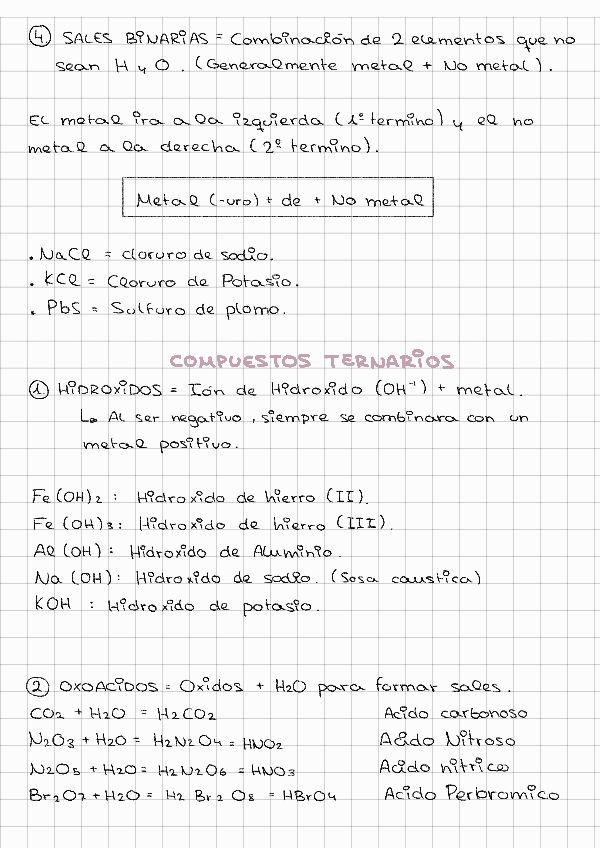 ④ SALES BINARIAS = Combinación de 2 elementos que no
sean H y O. (Generalmente metal + No metal).
El metal ira a la izquierda (1º termino) y el no
metal a la derecha (2º termino).
Metal (-uro) + de + No metal
. NaCl = cloruro de sodio.
. KCl = Cloruro de Potasio.
. PbS = Sulfuro de plomo.
COMPUESTOS TERNARIOS
① HiDROXiDOS = Ión de Hidroxido (OH⁻¹) + metal.
↳ Al ser negativo, siempre se combinara con un
metal positivo.
Fe(OH)₂ : Hidroxido de hierro (II).
Fe(OH)₃: Hidroxido de hierro (III).
Al(OH): Hidroxido de Aluminio.
Na(OH): Hidroxido de sodio. (Sosa caustica)
KOH : Hidroxido de potasio.
② OXOACiDOS = Oxidos + H₂O para formar sales.
CO₂ + H₂O = H₂CO₂ Acido carbonoso
N₂O₃ + H₂O = H₂N₂O₄ = HNO₂ Acido Nitroso
N₂O₅ + H₂O = H₂N₂O₆ = HNO₃ Acido nitrico
Br₂O₇ + H₂O = H₂ Br₂ O₈ = HBrO₄ Acido Perbromico